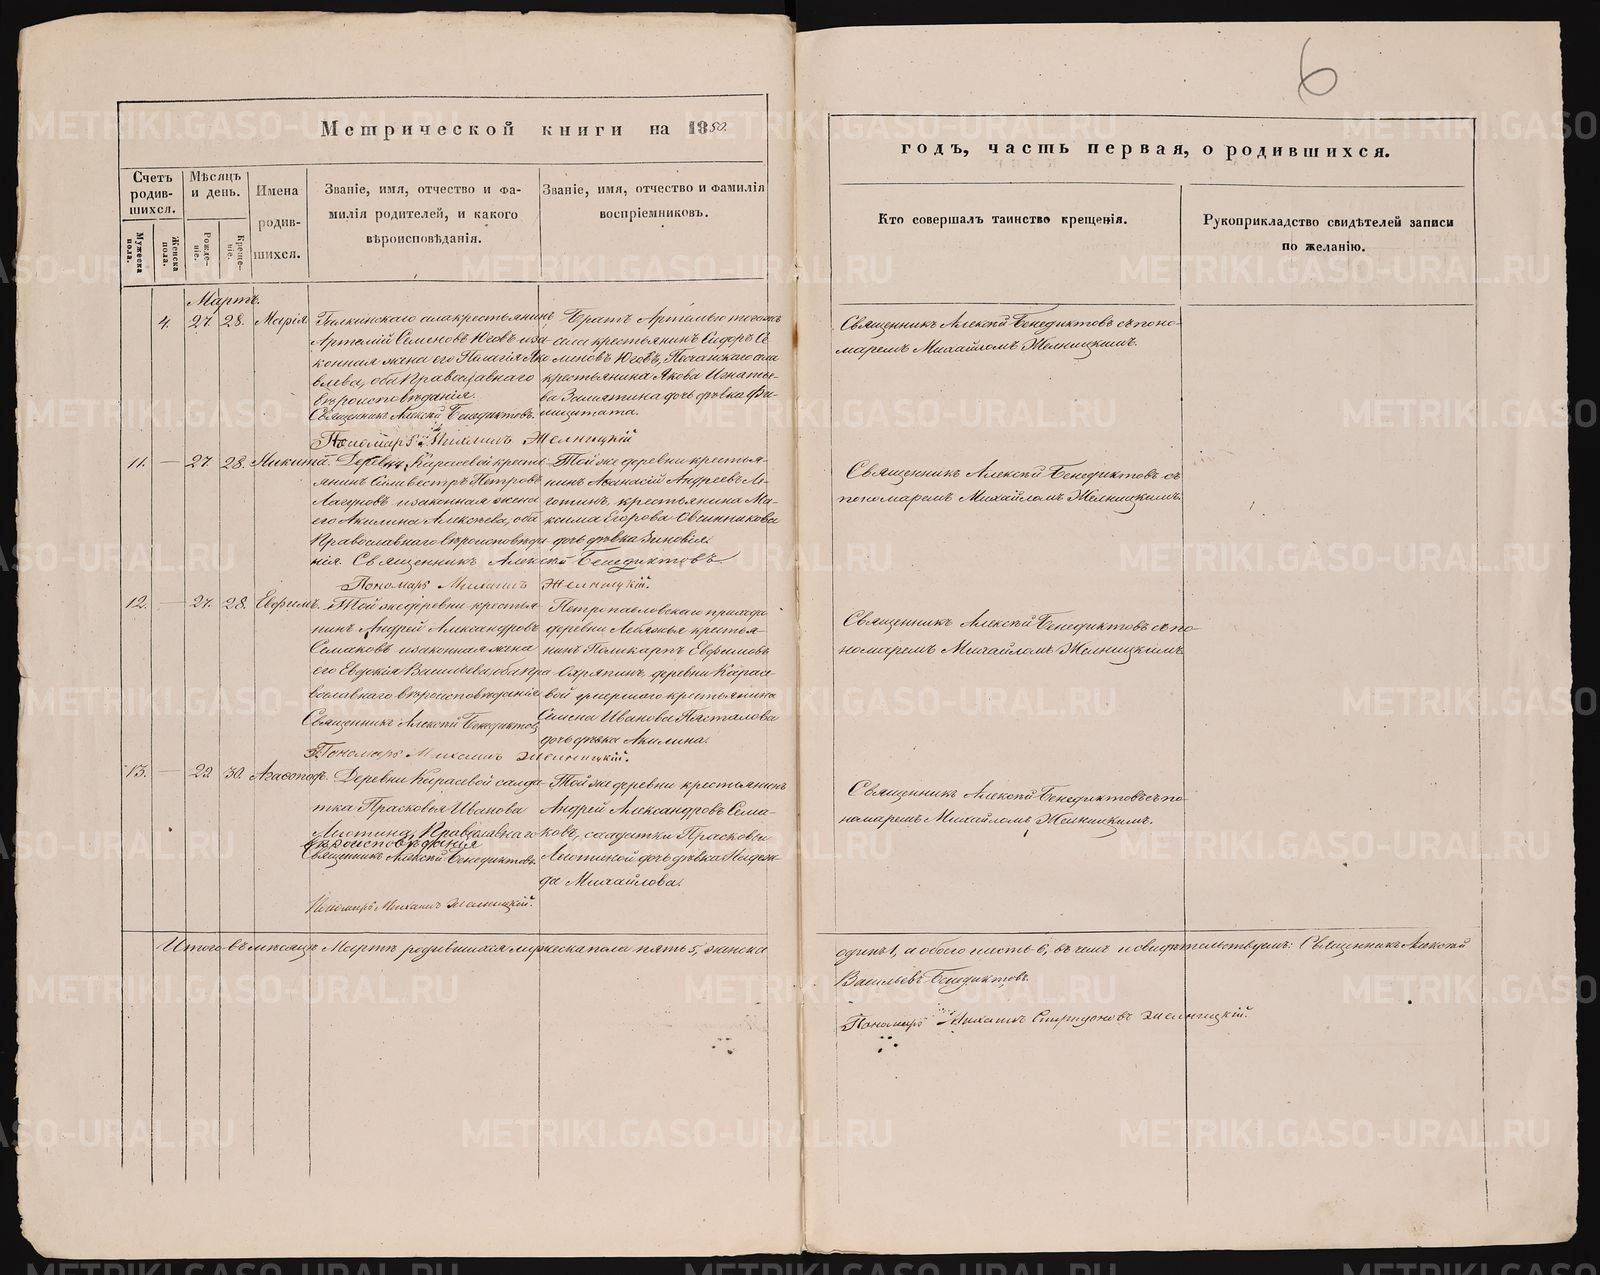 6
Метрической книги на 1850.
годъ, часть первая, о родившихся.
Счетъ родив-шихся.
Мужеска пола.
Женска пола.
Мѣсяцъ и день.
Рожде-ніе.
Креще-ніе.
Имена родив-шихся.
Званіе, имя, отчество и фа-
милія родителей, и какого
вѣроисповѣданія.
Званіе, имя, отчество и фамилія
воспріемниковъ.
Кто совершалъ таинство крещенія.
Рукоприкладство свидѣтелей записи
по желанію.
Мартъ.
4. 27. 28. Марія.
села крестьянинъ
Артемій Семеновъ Юговъ иза-
конная жена его Пелагія Яко-
влева, оба Православнаго
вѣроисповѣданія.
Священникъ Алексій Бенедиктовъ.
Пономарь Михаилъ Желницкій
Братъ Артемью тогожъ
села крестьянинъ Сидоръ Се-
меновъ Юговъ, села
крестьянина Якова Игнатье-
ва дочь дѣвка Фи-
лицитата.
Священникъ Алексій Бенедиктовъ съ поно-
маремъ Михайломъ Желницкимъ.
11. — 27. 28. Никита.
Деревни Карасевой кресть-
янинъ Силивестръ Петровъ
изаконная жена
его Акилина Алексѣева, оба
Православнаго вѣроисповѣда-
нія. Священникъ Алексій Бенедиктовъ
Пономарь Михаилъ Желницкій.
Той же деревни крестья-
нинъ Афанасій Андреевъ
крестьянина Ма-
ксима Егорова Овсянникова
дочь дѣвка Зиновія.
Священникъ Алексій Бенедиктовъ съ
пономаремъ Михайломъ Желницкимъ.
12. — 27. 28. Евфимъ.
Той же деревни крестья-
нинъ Андрей Александровъ
Семаковъ изаконная жена
его Евдокія Васильева, оба Пра-
вославнаго вѣроисповѣданія
Священникъ Алексій Бенедиктовъ
Пономарь Михаилъ Желницкій.
Петропавловскаго прихода
деревни Лебяжья крестья-
нинъ Поликарпъ Евфимовъ
Охряпинъ, деревни Карасе-
вой умершаго крестьянина
Семена Иванова
дочь дѣвка Акилина.
Священникъ Алексій Бенедиктовъ съ по-
номаремъ Михайломъ Желницкимъ
13. — 22 30. Агафоподъ.
Деревни Карасевой салда-
тка Прасковья Иванова
Православнаго
вѣроисповѣданія
Священникъ Алексій Бенедиктовъ.
Пономарь Михаилъ Желницкій.
Той же деревни крестьянинъ
Андрей Александровъ Сема-
ковъ, салдатки Прасковьи
дочь дѣвка Надеж-
да Михайлова.
Священникъ Алексій Бенедиктовъ съ по-
номаремъ Михайломъ Желницкимъ.
Итого въ мѣсяцѣ Мартѣ родившихся мужеска пола пять 5, женска
одинъ 1, а обоего шесть 6, въ чемъ и свидѣтельствуемъ: Священникъ Алексій
Васильевъ Бенедиктовъ.
Пономарь Михаилъ Спиридоновъ Желницкій.
METRIKI.GASO-URAL.RU